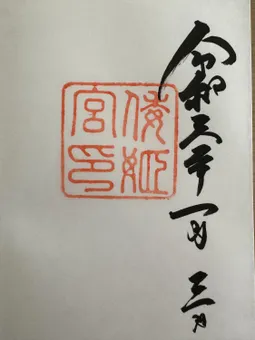 令和三年一月三日
倭姫
宮印